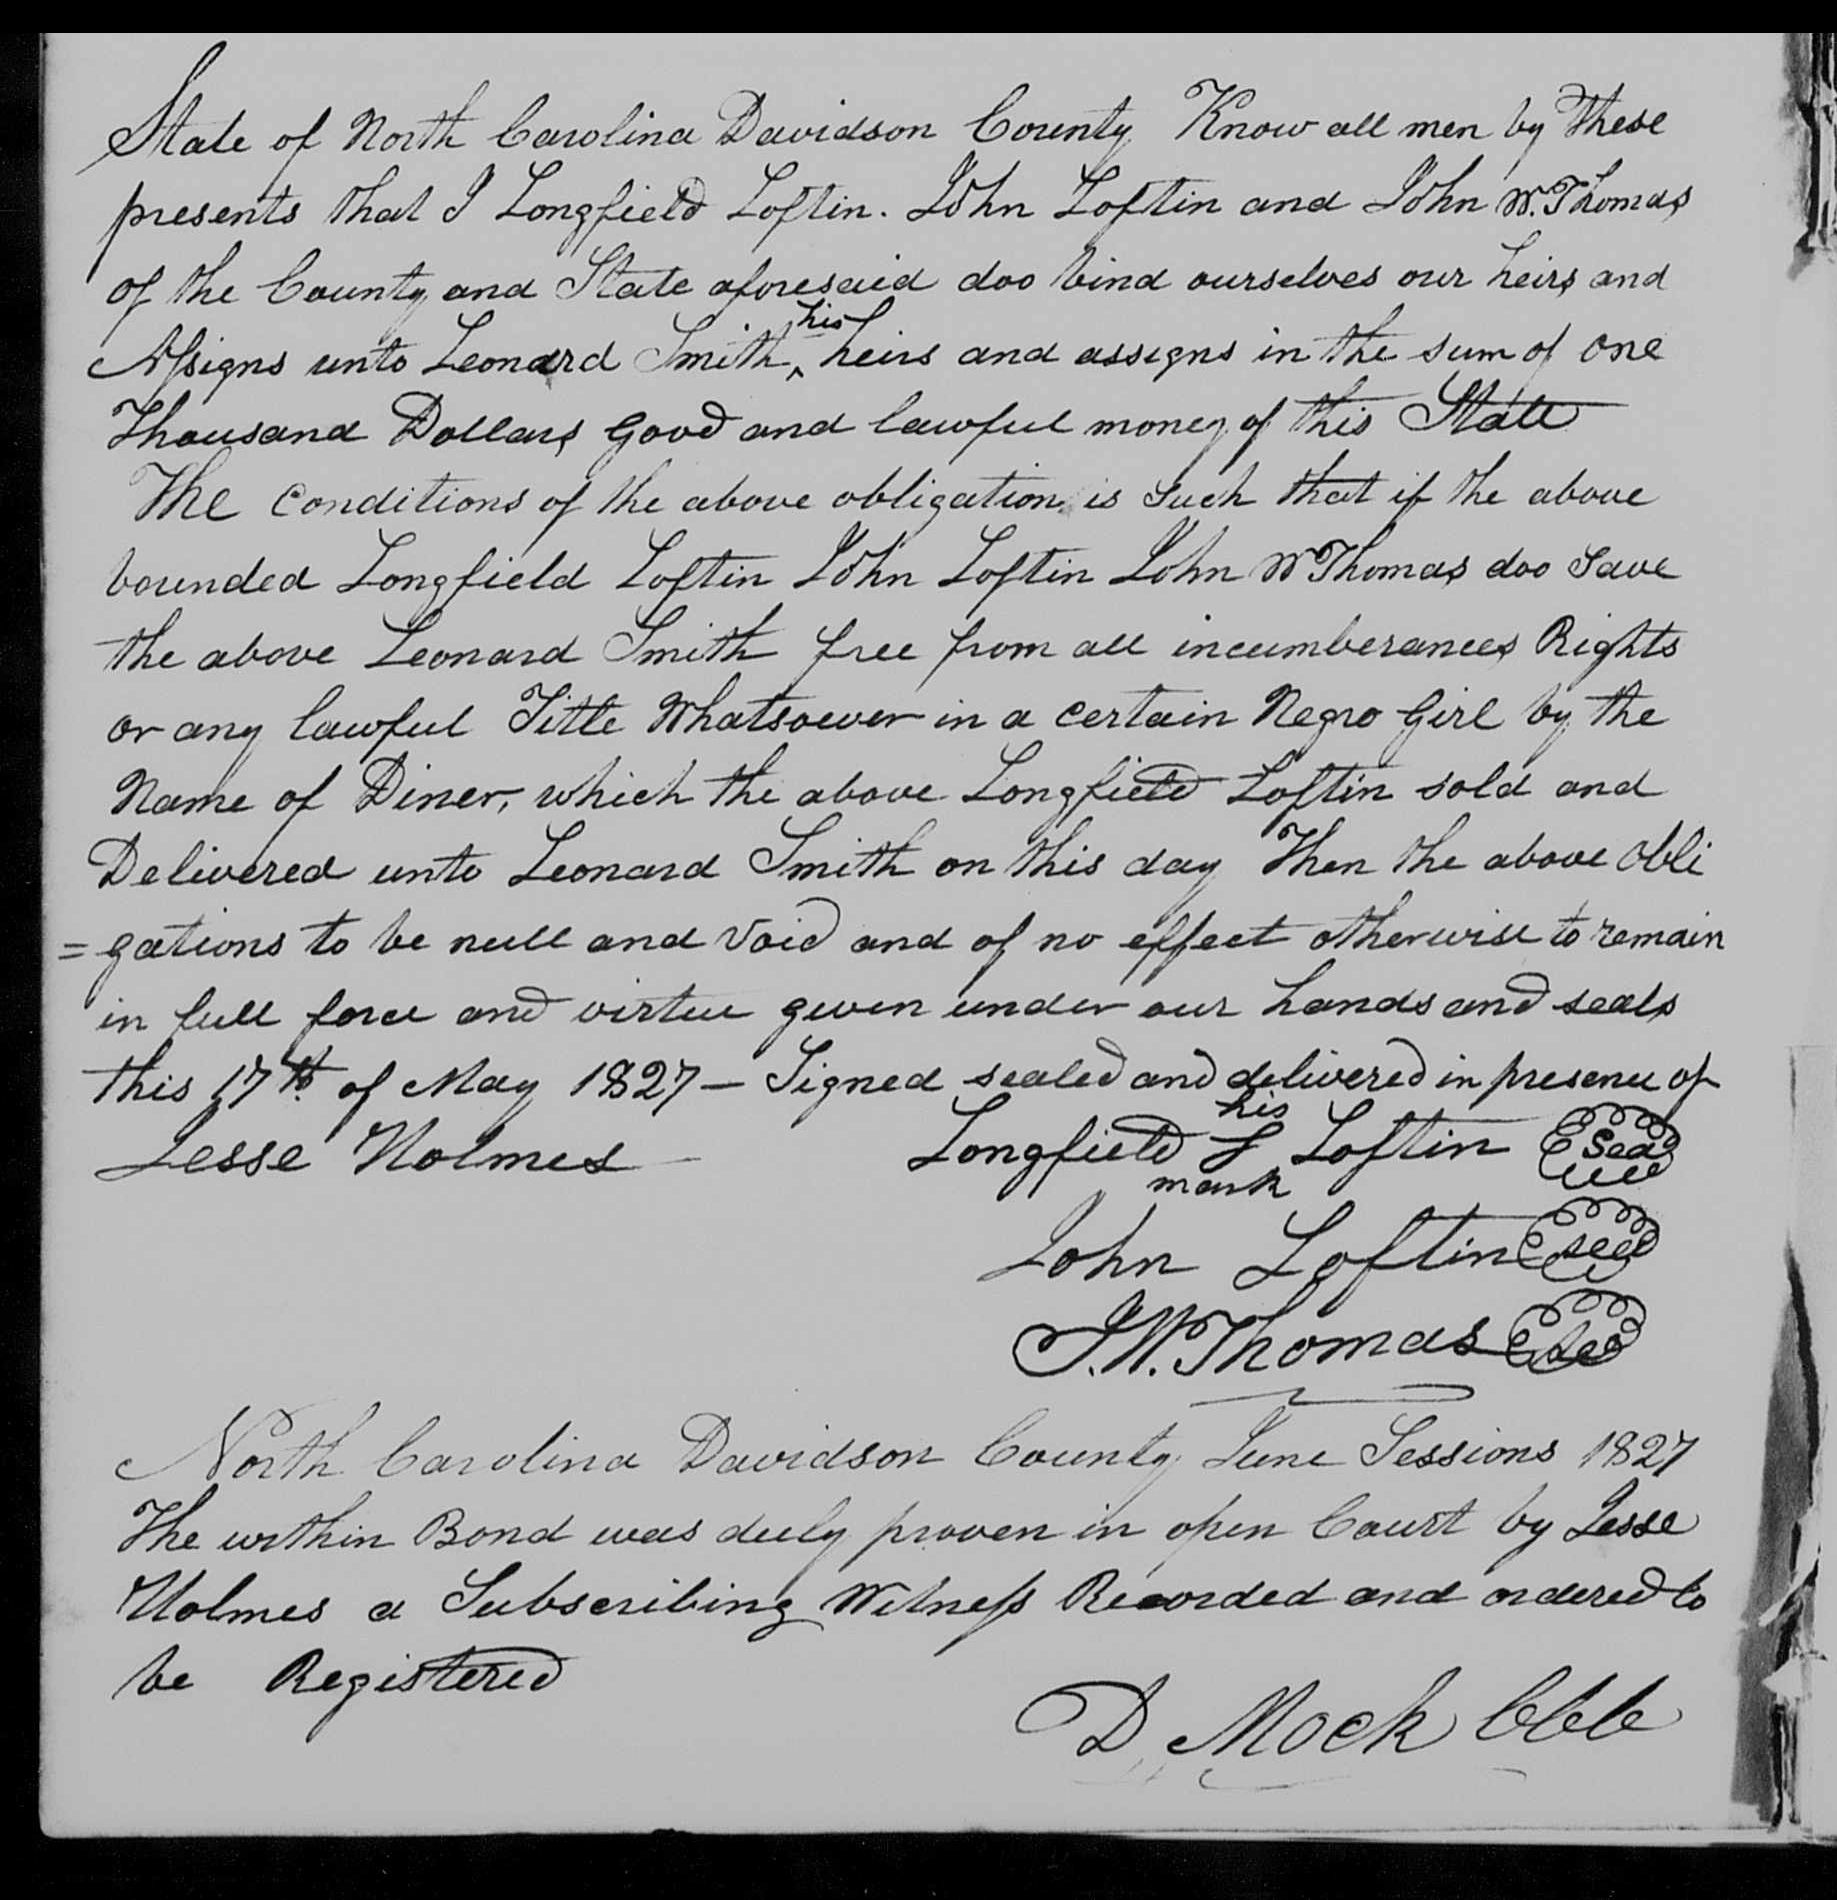 State of North Carolina Davidson County Know all men by These
presents that I Longfield Loftin. John Loftin and John W. Thomas
of the County and State aforesaid doo bind ourselves our heirs and
Assigns unto Leonard Smith ^ his heirs and assigns in the sum of one
Thousand Dollars Good and lawful money of this State
The conditions of the above obligation is such that if the above
bounded Longfield Loftin John Loftin John W Thomas doo save
the above Leonard Smith free from all incumberances Rights
or any lawful Title Whatsoever in a certain Negro Girl by the
Name of Diner, which the above Longfield Loftin sold and
Delivered unto Leonard Smith on this day Then the above obli
=gations to be null and void and of no effect otherwise to remain
in full force and virtue given under our hands and seals
this 17th. of May 1827 – Signed sealed and delivered in presence of
Jesse Holmes Longfield his L mark Loftin Seal
John Loftin seal
J. W. Thomas seal
North Carolina Davidson County June Sessions 1827
The within Bond was duly proven in open Court by Jesse
Holmes a Subscribing Witness Recorded and ordered to
be Registered
D. Mock CCC